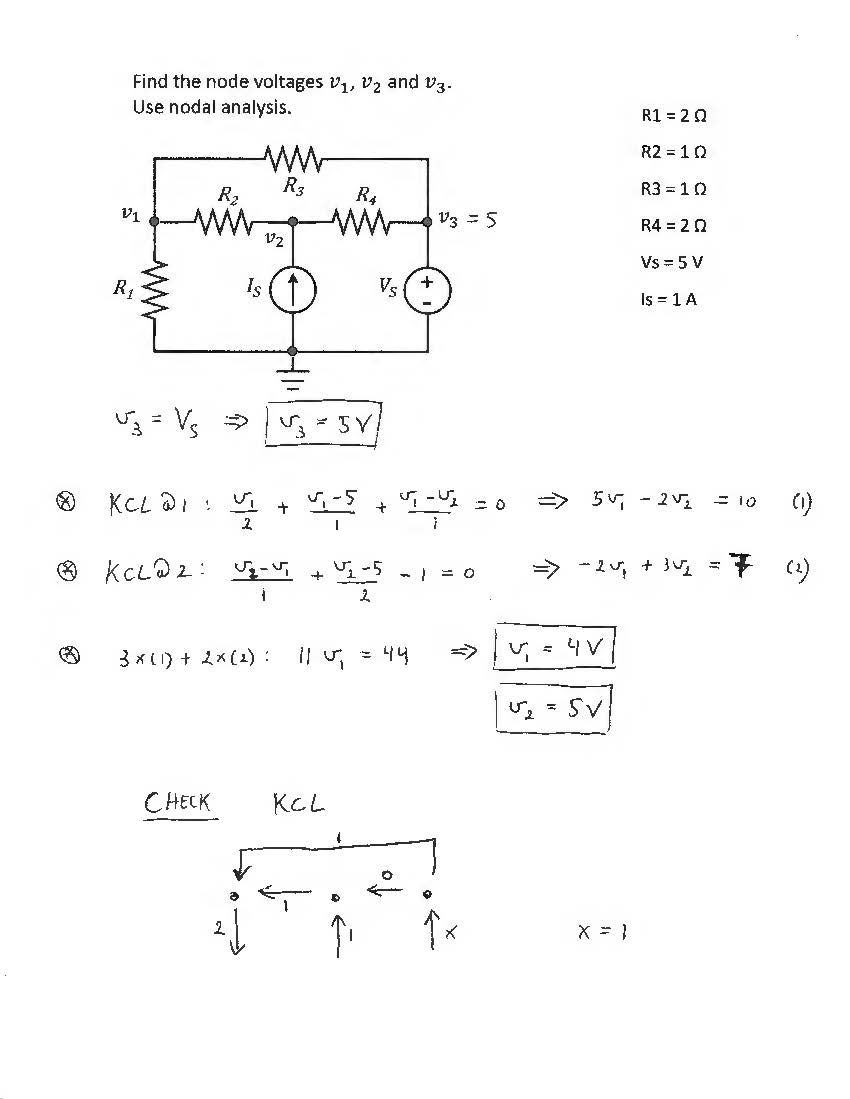 Find the node voltages v₁, v₂ and v₃.
Use nodal analysis.
R1 = 2 Ω
R2 = 1 Ω
R3 = 1 Ω
R4 = 2 Ω
Vs = 5 V
Is = 1 A
R₃
R₂ R₄
v₁ v₂ v₃ = 5
R₁ I_S V_S + -
v₃ = V_S ⇒ v₃ = 5V
⊛ KCL @ 1 : v₁/2 + (v₁-5)/1 + (v₁-v₂)/1 = 0 ⇒ 5v₁ - 2v₂ = 10 (1)
⊛ KCL @ 2 : (v₂-v₁)/1 + (v₂-5)/2 - 1 = 0 ⇒ -2v₁ + 3v₂ = 7 (2)
⊛ 3×(1) + 2×(2) : 11 v₁ = 44 ⇒ v₁ = 4V
v₂ = 5V
CHECK KCL
1
0
1
2 1 x x = 1